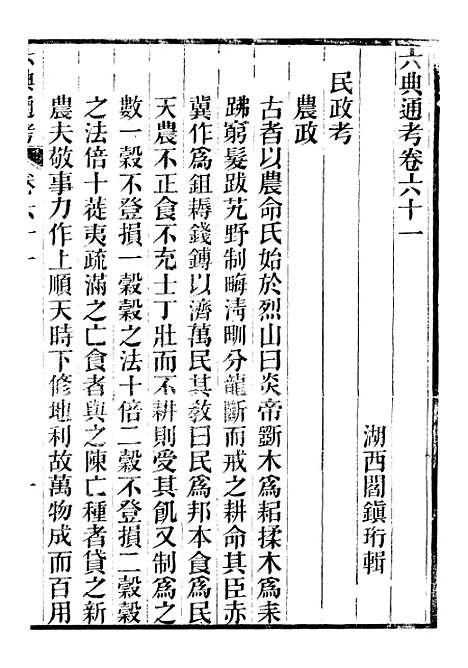 六典通考卷六十一
湖西閻鎭珩輯
民政考
農政
古者以農命氏始於烈山曰炎帝斲木爲耜揉木爲耒
跣窮髮跋艽野制畮淸甽分龍斷而戒之耕命其臣赤
冀作爲鉏耨錢鎛以濟萬民其敎曰民爲邦本食爲民
天農不正食不充士丁壯而不耕則受其飢又制爲之
數一穀不登損一穀穀之法十倍二穀不登損二穀穀
之法倍十蓰夷疏滿之亡食者與之陳亡種者貸之新
農夫敬事力作上順天時下修地利故萬物成而百用
六典通考
卷六十一
一